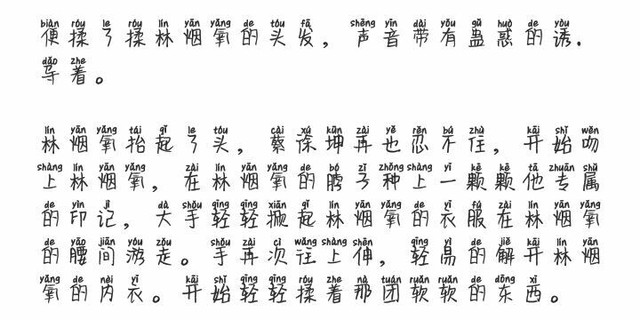 biàn róu le róu lín yān yǎng de tóu fā shēng yīn dài yǒu gǔ huò de yòu
便揉了揉林烟氧的头发，声音带有蛊惑的诱.
dǎo zhe
导着。
lín yān yǎng tái qǐ le tóu cài xú kūn zài yě rěn bú zhù kāi shǐ wěn
林烟氧抬起了头，蔡徐坤再也忍不住，开始吻
shàng lín yān yǎng zài lín yān yǎng de bó zǐ zhǒng shàng yī kē kē tā zhuān shǔ
上林烟氧，在林烟氧的脖子种上一颗颗他专属
de yìn jì dà shǒu qīng qīng xiān qǐ lín yān yǎng de yī fú zài lín yān yǎng
的印记，大手轻轻掀起林烟氧的衣服在林烟氧
de yāo jiān yóu zǒu shǒu zài cì wǎng shàng shēn qīng yì de jiě kāi lín yān
的腰间游走。手再次往上伸，轻易的解开林烟
yǎng de nèi yī kāi shǐ qīng qīng róu zhe nà tuán ruǎn ruǎn de dōng xī
氧的内衣。开始轻轻揉着那团软软的东西。